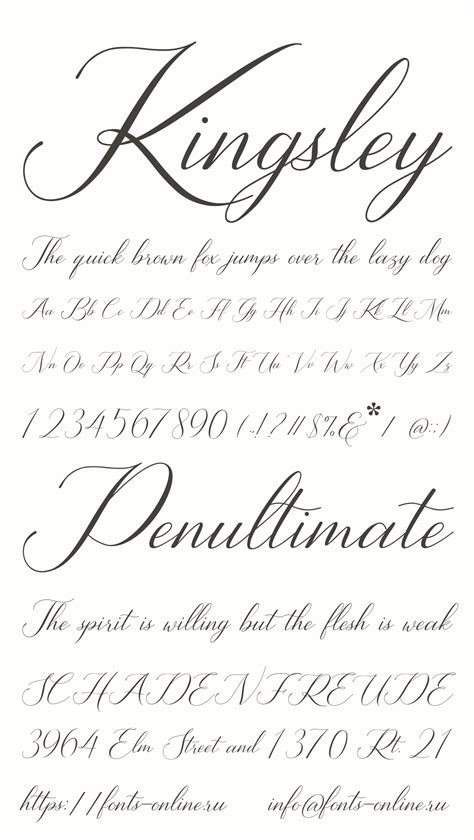 Kingsley
The quick brown fox jumps over the lazy dog
Aa Bb Cc Dd Ee Ff Gg Hh Ii Jj Kk Ll Mm
Nn Oo Pp Qq Rr Ss Tt Uu Vv Ww Xx Yy Zz
1234567890 (.,!?/|$%&*/ @:;)
Penultimate
The spirit is willing but the flesh is weak
SCHADENFREUDE
3964 Elm Street and 1370 Rt. 21
https://fonts-online.ru info@fonts-online.ru